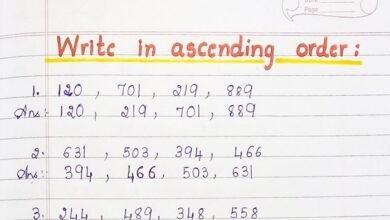 Page
Write in ascending order :
1. 120 , 701 , 219 , 889
Ans:- 120 , 219 , 701 , 889
2. 631 , 503 , 394 , 466
Ans:- 394 , 466 , 503 , 631
3. 244 , 489 , 348 , 558